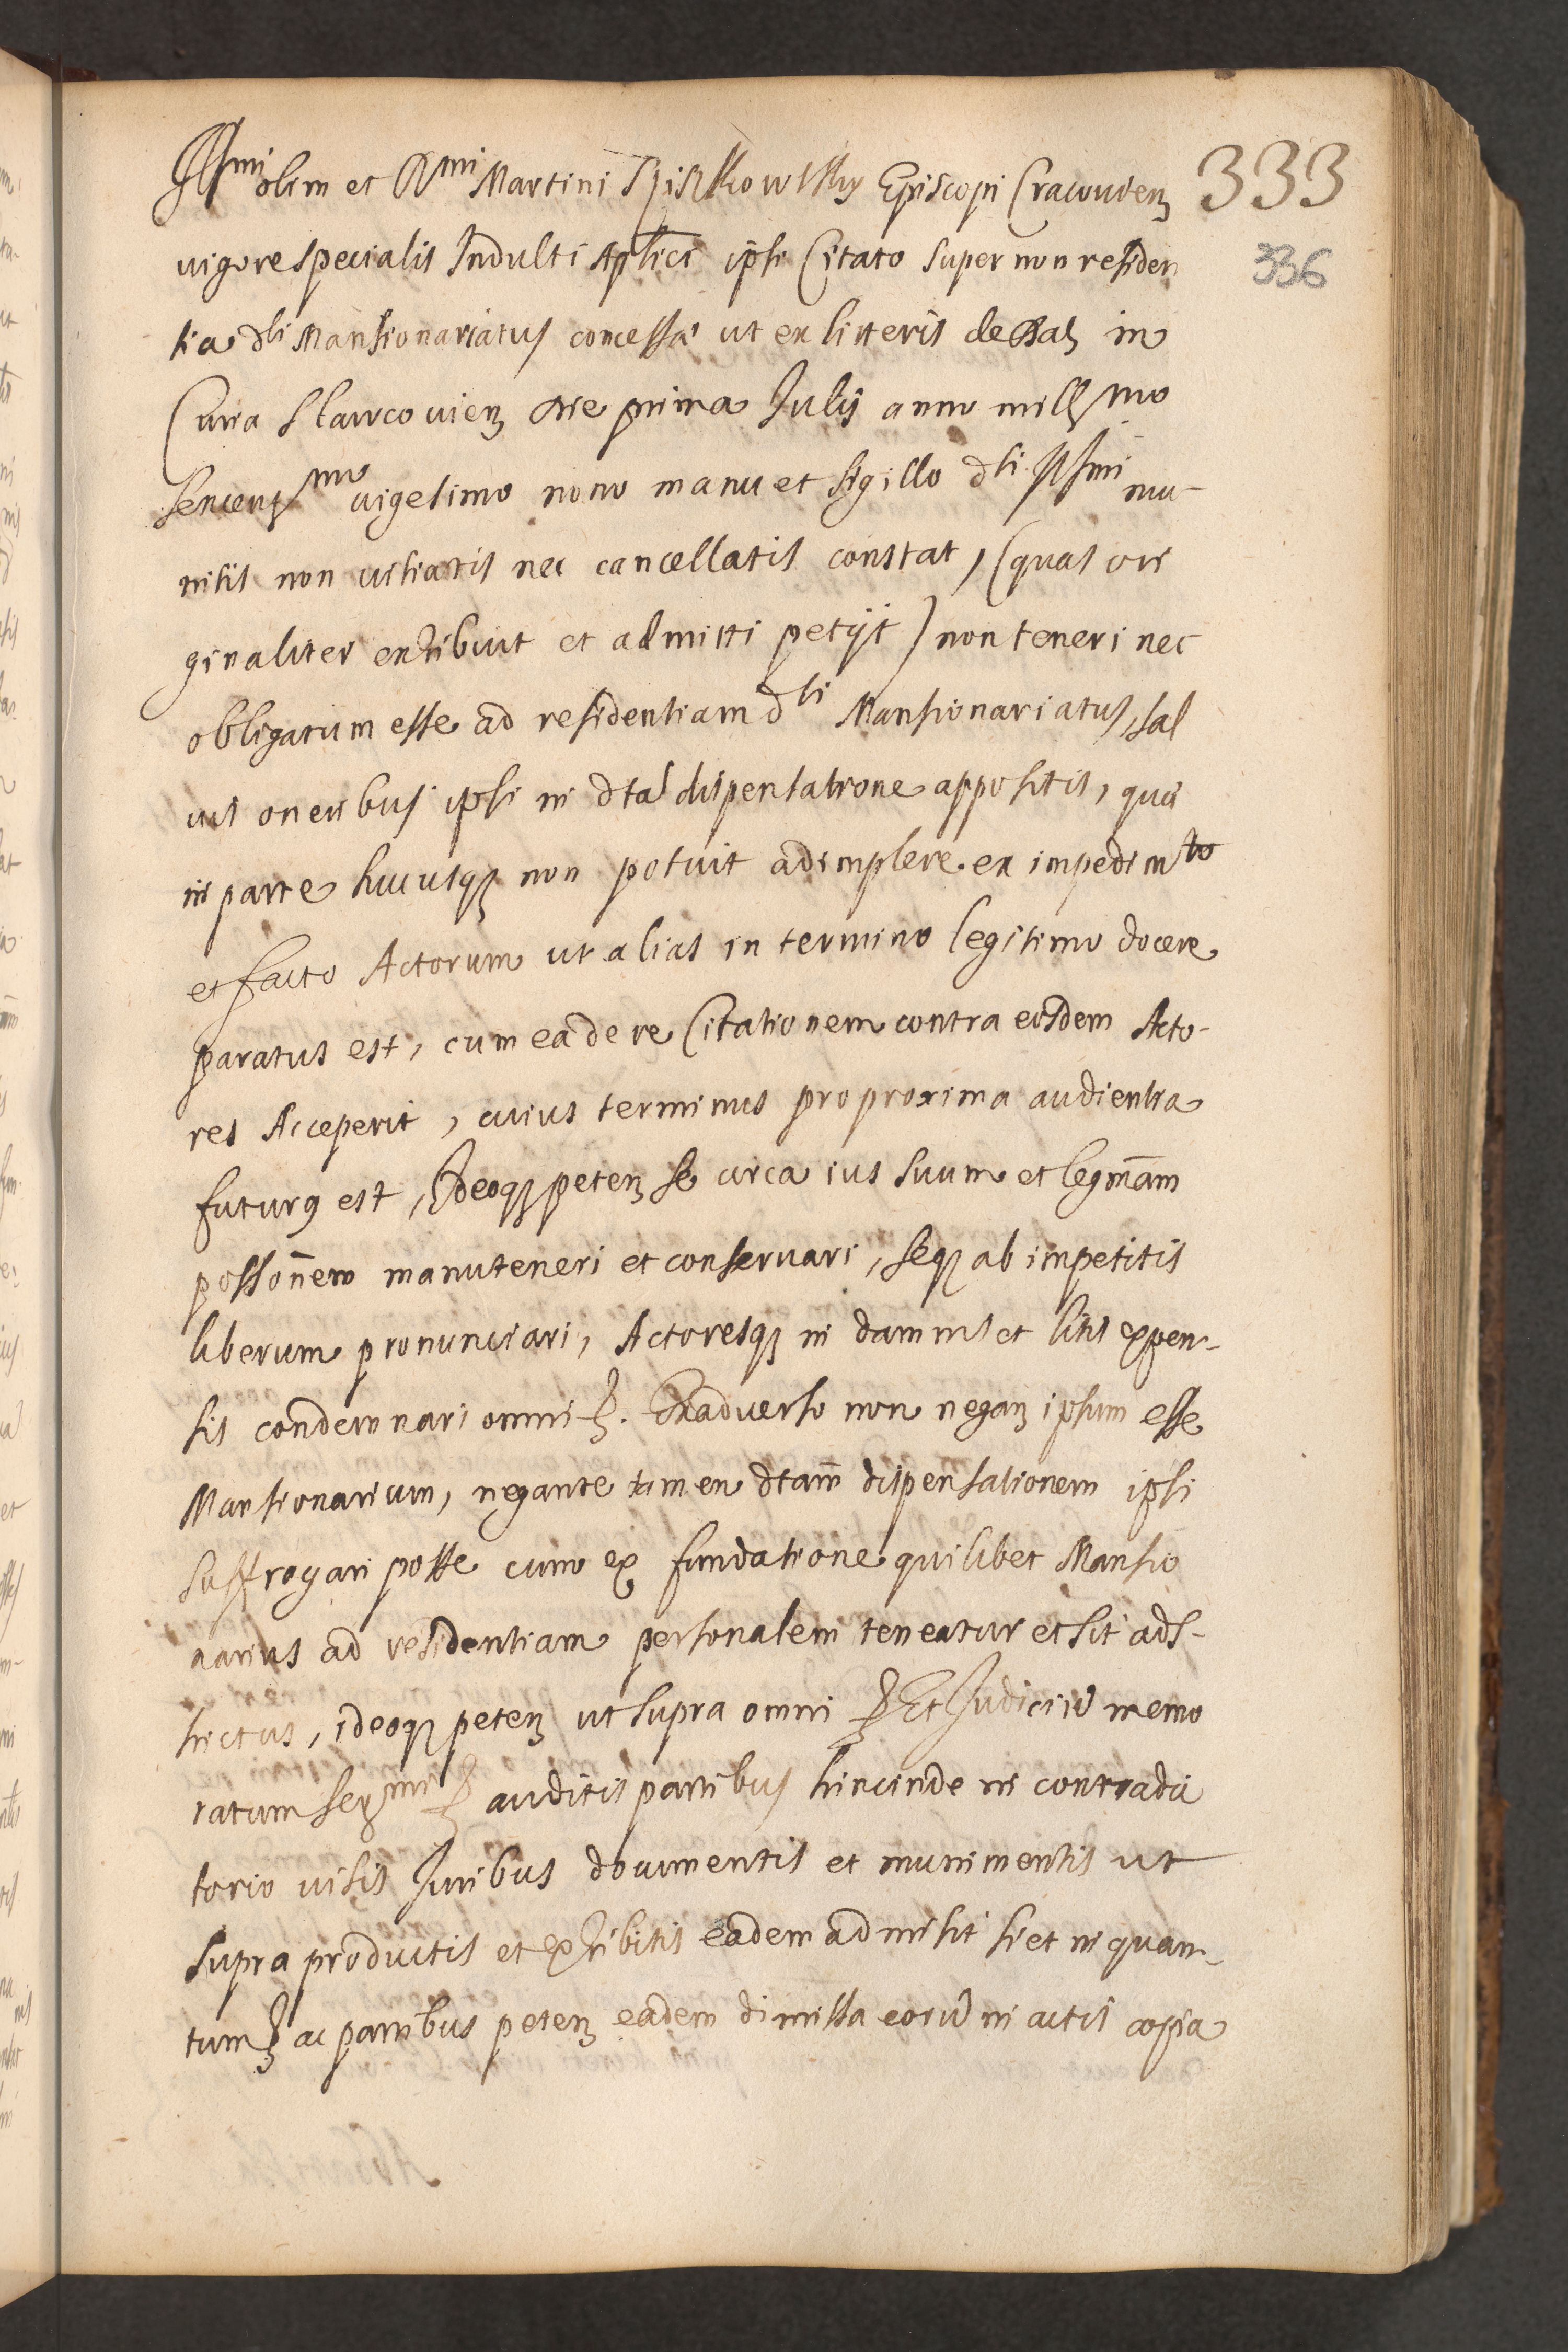 Illmi olim et Rmi Martini Szyszkowsky Episcopi Cracouien 333
uigore specialis Indulti Aplici ipsi Citato super non residen 336
tia dti Mansionariatus concessa ut ex litteris de dat in
Curia Slawcouien die prima Julij anno mill mo
sexcent mo uigesimo nono manu et sigillo dti Illmi mu-
nitis non uitiatis nec cancellatis constat, (quas ori
ginaliter exhibuit et admitti petijt) non teneri nec
obligatum esse ad residentiam dti Mansionariatus, sal
uis oneribus ipsi in dta dispensatione appositis, quae
in parte hucusq non potuit adimplere ex impedim to
et facto Actorum ut alias in termino legitimo docere
paratus est, cum ea de re Citationem contra eosdem Acto-
res Acceperit, cuius terminus pro proxima audientia
futurus est, Ideoq peten se circa ius suum et legmam
possonem manuteneri et conseruari, seq ab impetitis
liberum pronunciari, Actoresq in damnis et litis expen-
sis condemnari omni. Ex aduerso non negan ipsum esse
Mansionarium, negante tamen dtam dispensationem ipsi
suffragari posse cum ex fundatione quilibet Mansio
narius ad residentiam personalem teneatur et sit ads-
trictus, ideoq peten ut supra omni Et Judiciu memo
ratum ser mi auditis partibus hincinde in contradic
torio uisis Juribus documentis et munimentis ut
supra productis et exhibitis eadem admisit si et in quan-
tum ac partibus peten eadem dimissa eoru in actis copia